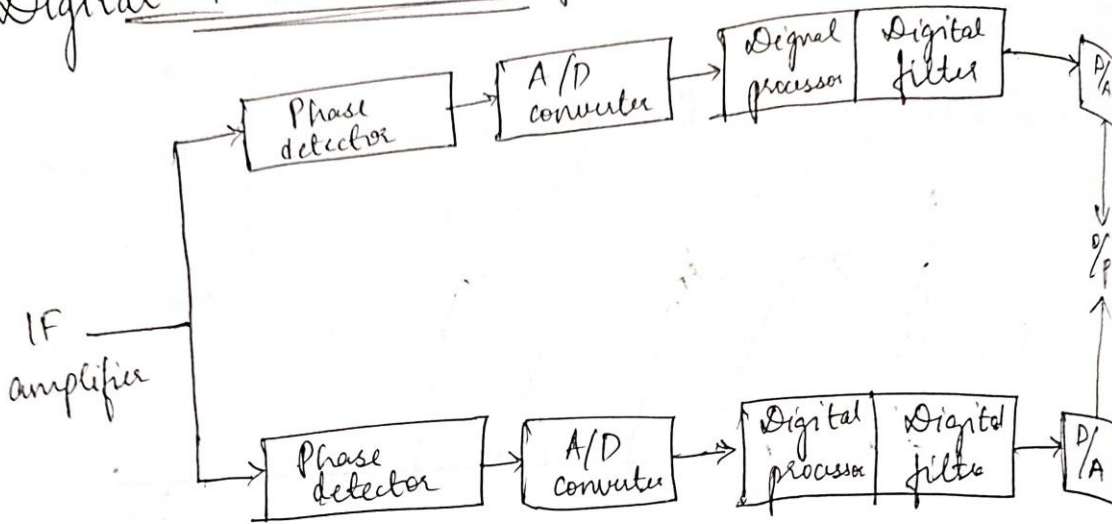 Digital
Phase
detector
A/D
converter
Signal
processor
Digital
filter
D/A
O/P
IF
amplifier
Phase
detector
A/D
converter
Digital
processor
Digital
filter
D/A